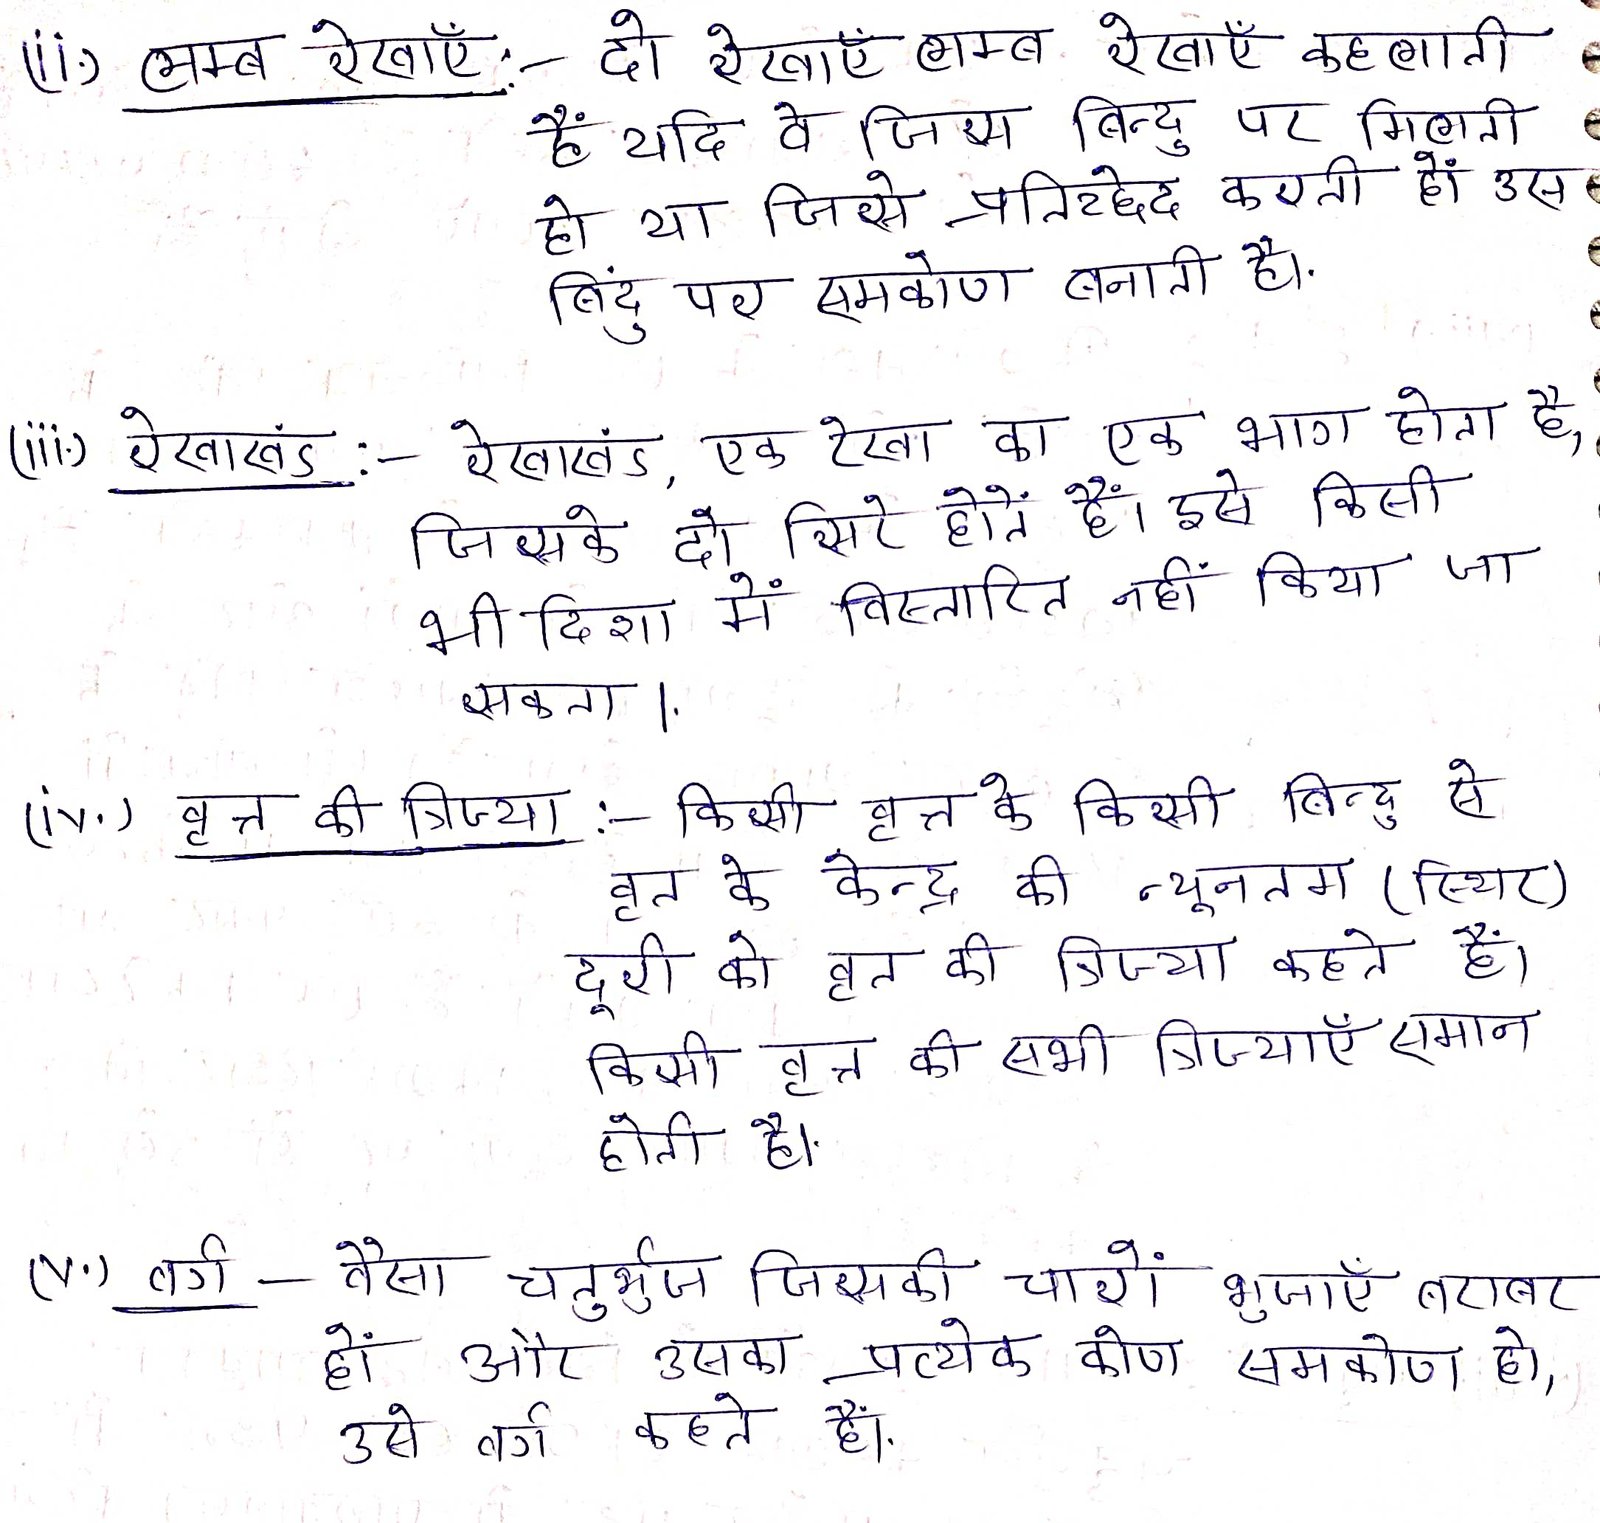 (ii.) लम्ब रेखाएँ :- दो रेखाएँ लम्ब रेखाएँ कहलाती
हैं यदि वे जिस बिन्दु पर मिलती
हो या जिसे प्रतिच्छेद करती हों उस
बिंदु पर समकोण बनाती है।
(iii.) रेखाखंड :- रेखाखंड, एक रेखा का एक भाग होता है,
जिसके दो सिरे होतें हैं। इसे किसी
भी दिशा में विस्तारित नहीं किया जा
सकता।
(iv.) वृत्त की त्रिज्या :- किसी वृत्त के किसी बिन्दु से
वृत के केन्द्र की न्यूनतम (स्थिर)
दूरी को वृत की त्रिज्या कहते हैं।
किसी वृत्त की सभी त्रिज्याएँ समान
होती है।
(v.) वर्ग - वैसा चतुर्भुज जिसकी चारों भुजाएँ बराबर
हों और उसका प्रत्येक कोण समकोण हो,
उसे वर्ग कहते हैं।